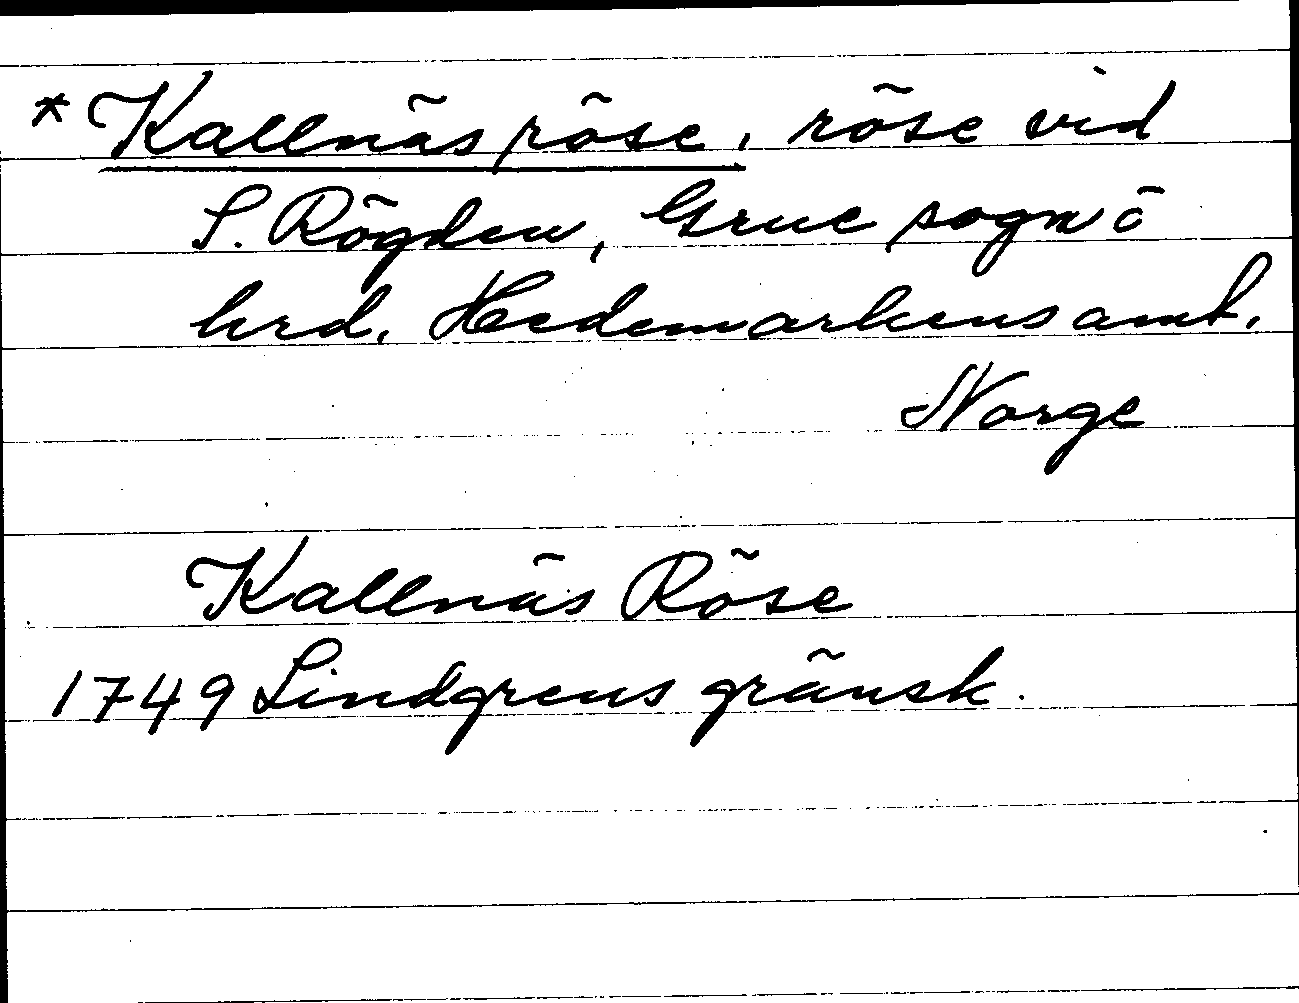 * Kallnäs röse, röse vid
S. Rögden, Grue sogn ö
hrd. Hedemarkens amt.
Norge
Kallnäs Röse
1749 Lindgrens gränsk.